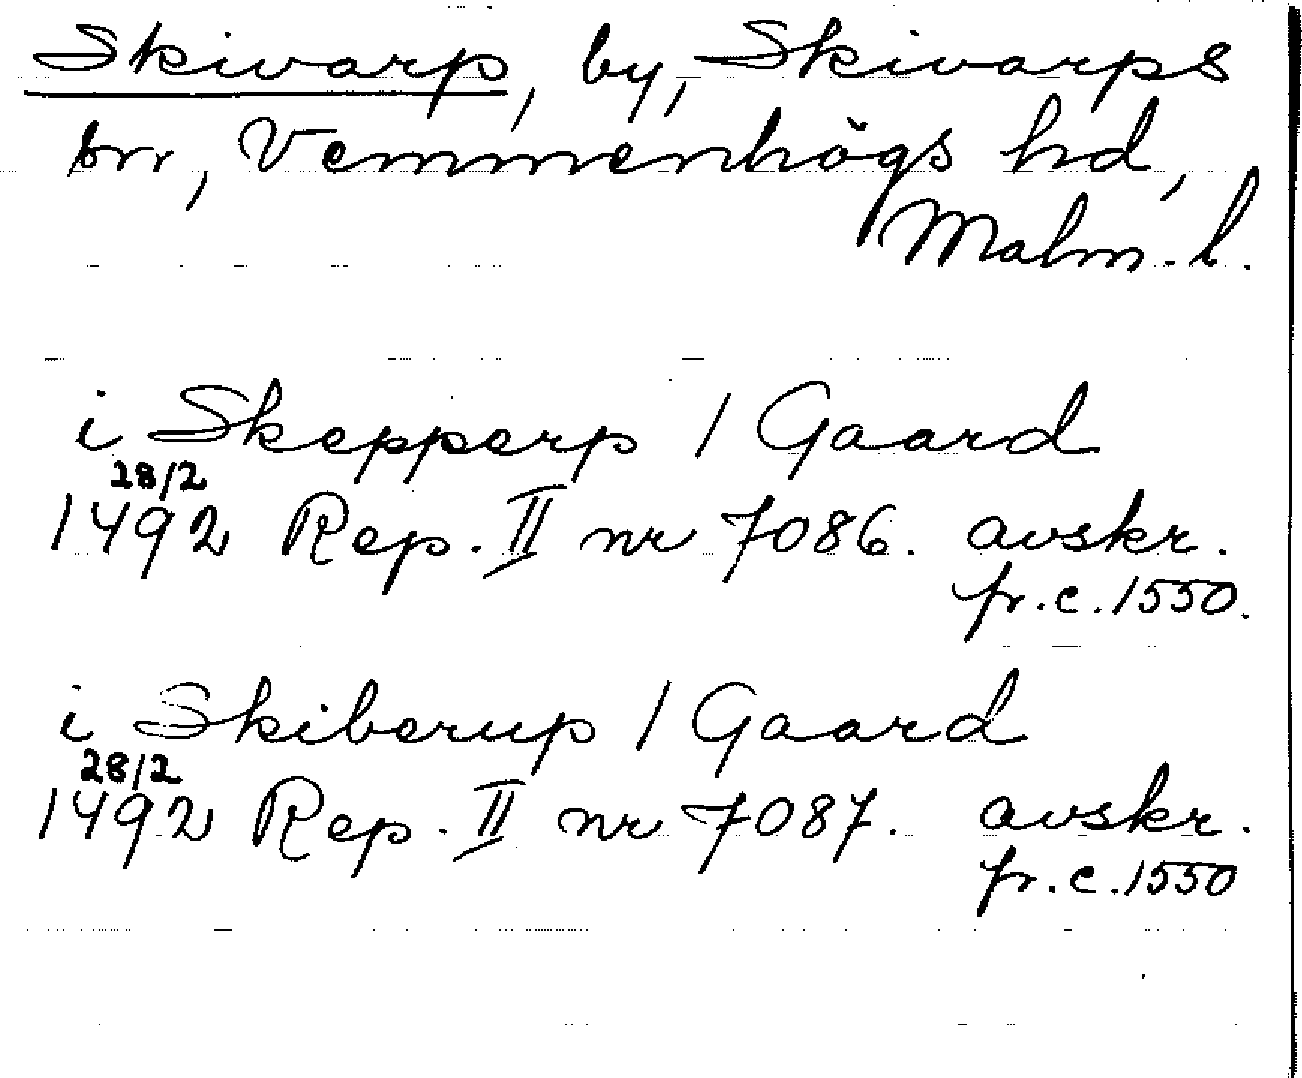 Skivarp, by, Skivarps
sn, Vemmenhögs hd,
Malm. l.
i Skepperp 1 Gaard
28/2
1492 Rep. II nr 7086. avskr.
fr. c. 1550.
i Skiberup 1 Gaard
28/2
1492 Rep. II nr 7087. avskr.
fr. c. 1550